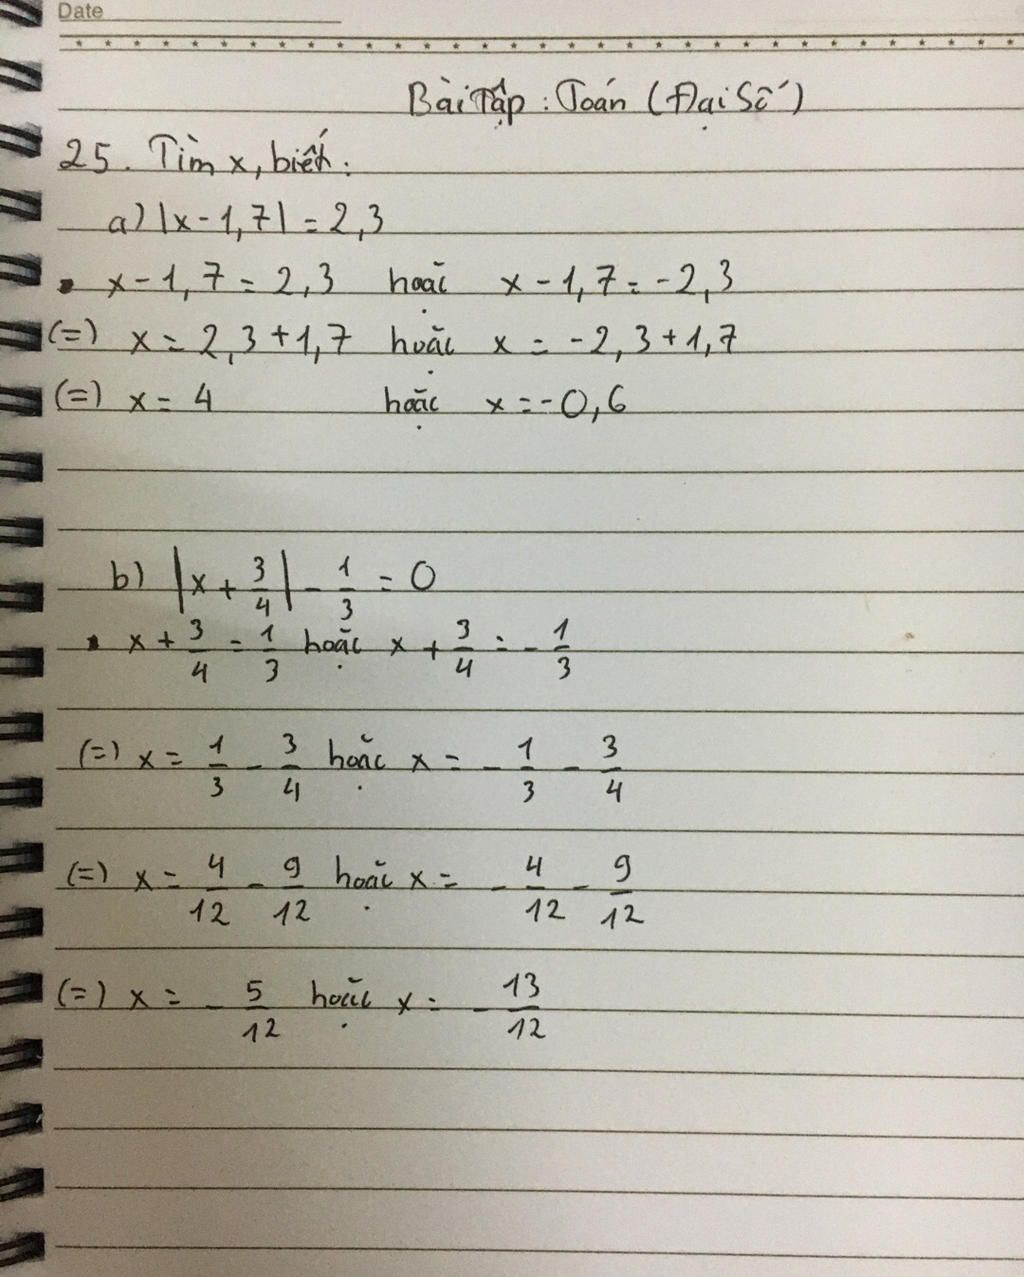 Date
Bài Tập : Toán (Đại Số)
25. Tìm x, biết:
a) |x - 1,7| = 2,3
• x - 1,7 = 2,3 hoặc x - 1,7 = -2,3
(=) x = 2,3 + 1,7 hoặc x = -2,3 + 1,7
(=) x = 4 hoặc x = -0,6
b) |x + 3/4| - 1/3 = 0
• x + 3/4 = 1/3 hoặc x + 3/4 = - 1/3
(=) x = 1/3 - 3/4 hoặc x = - 1/3 - 3/4
(=) x = 4/12 - 9/12 hoặc x = - 4/12 - 9/12
(=) x = - 5/12 hoặc x = - 13/12